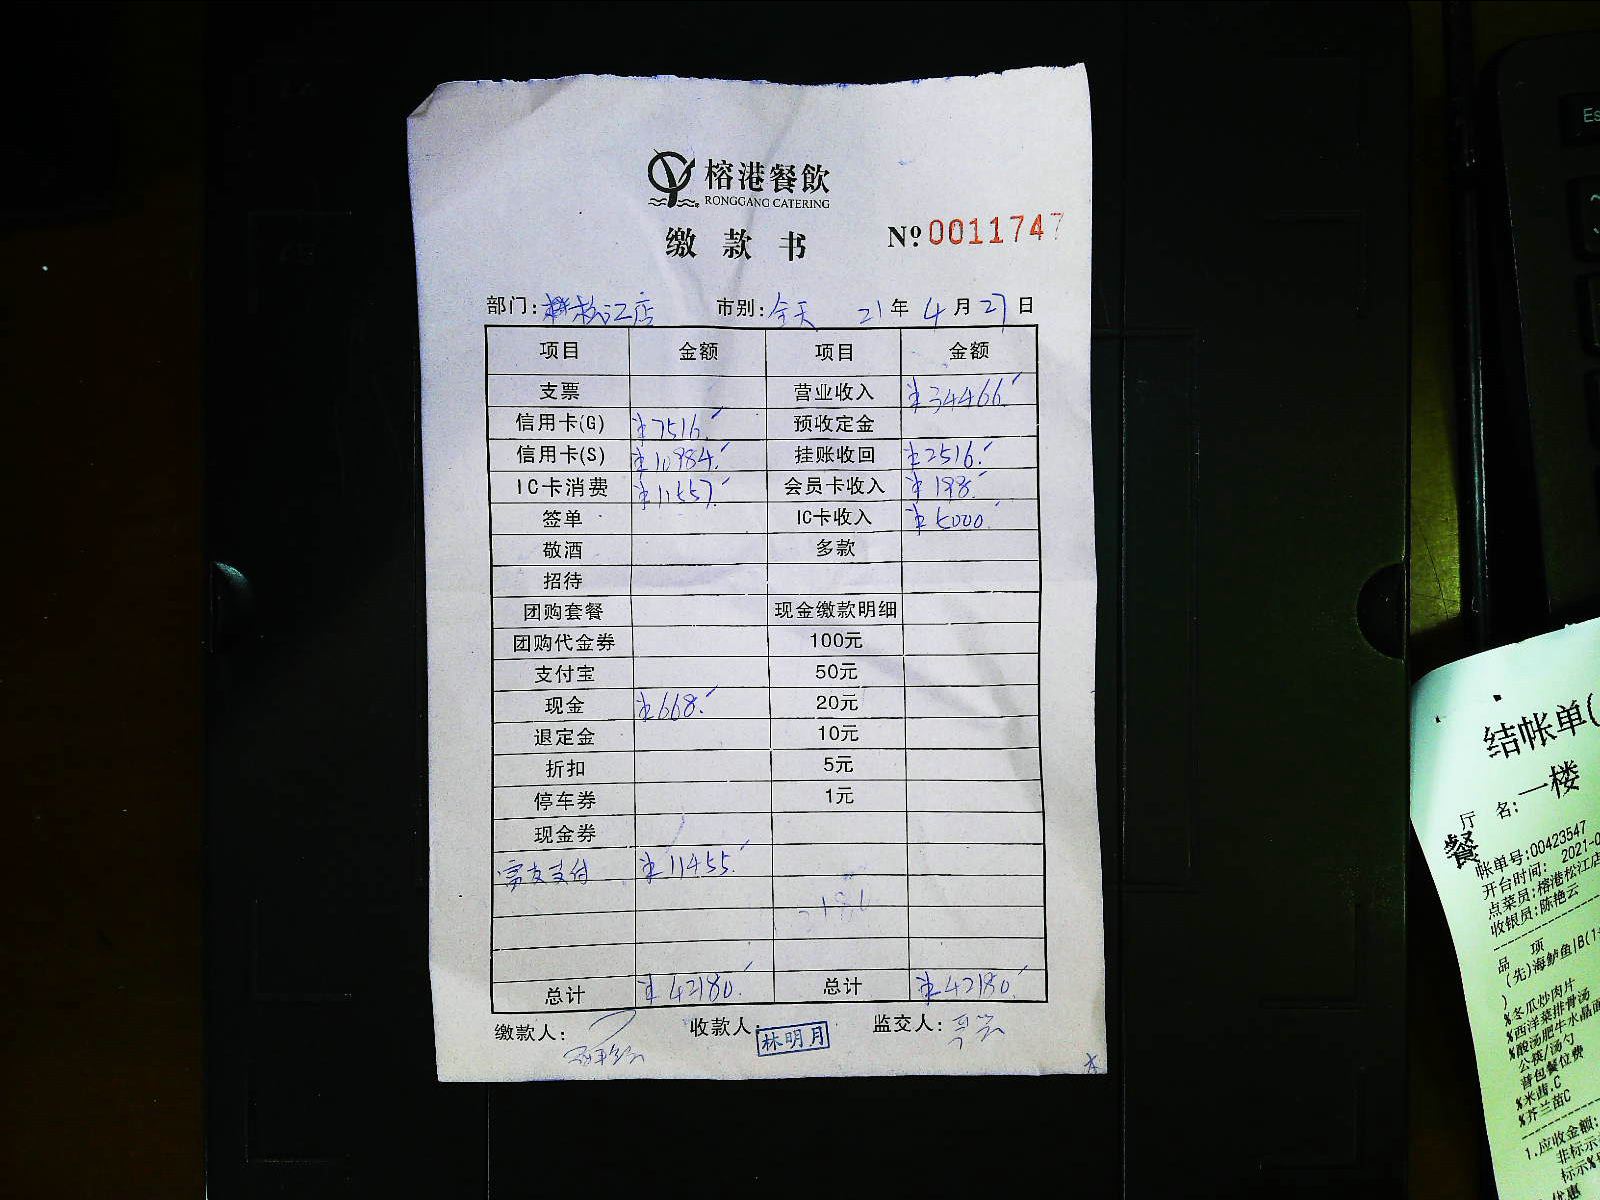 榕港餐飲
RONGGANG CATERING
缴款书 Nº 0011747
部门: 松江店 市别: 全天 21年4月27日
项目 金额 项目 金额
支票 营业收入 ¥34466.
信用卡(G) ¥7516. 预收定金
信用卡(S) ¥10984. 挂账收回 ¥2516.
IC卡消费 ¥11557. 会员卡收入 ¥198.
签单 IC卡收入 ¥5000.
敬酒 多款
招待
团购套餐 现金缴款明细
团购代金券 100元
支付宝 50元
现金 ¥668. 20元
退定金 10元
折扣 5元
停车券 1元
现金券
富友支付 ¥11455.
总计 ¥42180. 总计 ¥42180.
缴款人: 收款人: 林明月 监交人:
Es
结帐单(
厅 名: 一楼
餐
帐单号:00423547
开台时间: 2021-0
点菜员:榕港松江店
收银员:陈艳云
品 项
(先)海鲈鱼|B(1
)
%冬瓜炒肉片
%西洋菜排骨汤
%酸汤肥牛水晶面
公筷/汤勺
普包餐位费
%米茜.C
%芥兰苗C
1.应收金额:
非标示
标示%
优惠